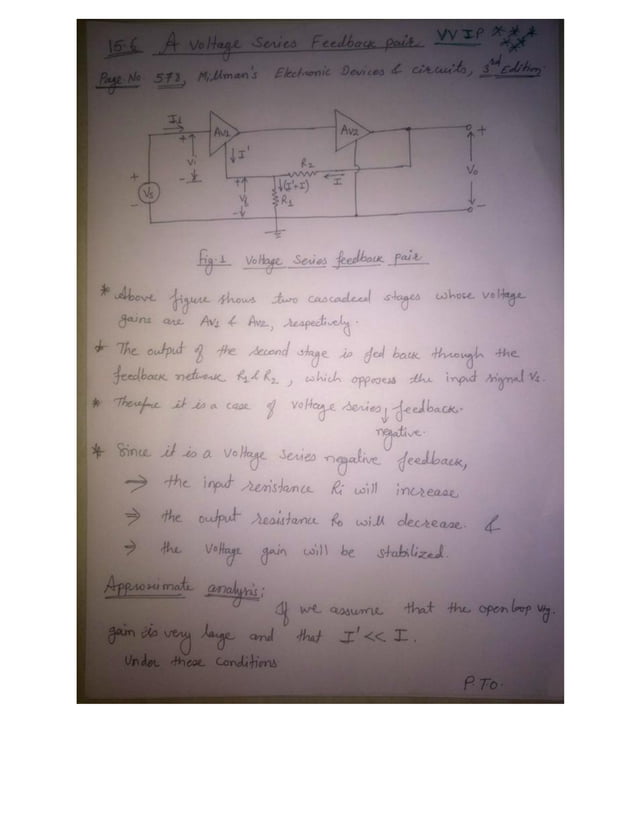 15.6 A Voltage Series Feedback pair VVIP ***
Page No 578, Millman's Electronic Devices & circuits, 3rd Edition
Ii
AV1
AV2
+
+
Vi
-
↓I'
R2
I
Vo
+
Vs
-
+
Vf
-
↓(I'+I)
R1
-
Fig.1 Voltage Series feedback pair
* Above figure shows two cascadeed stages whose voltage
gains are AV1 & AV2, respectively.
* The output of the second stage is fed back through the
feedback network R1 & R2, which opposes the input signal Vs.
* Therefore it is a case of voltage series feedback.
↓
negative.
* Since it is a voltage series negative feedback,
⇒ the input resistance Ri will increase
⇒ the output resistance Ro will decrease. &
⇒ the voltage gain will be stabilized.
Approximate analysis:
If we assume that the open loop vtg.
gain is very large and that I' << I.
Under these Conditions
P.T.O.